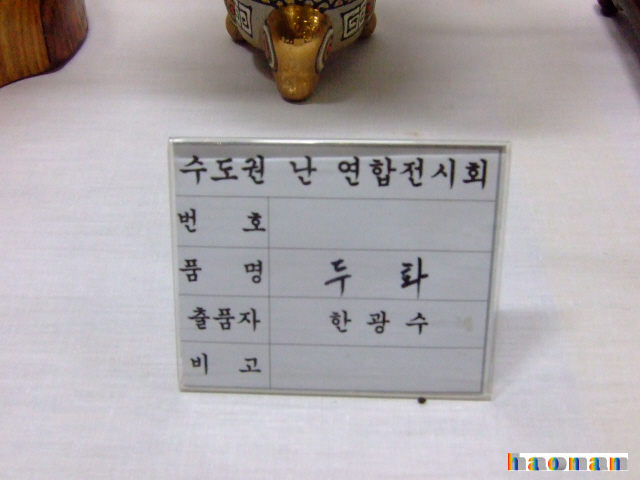 수도권 난 연합전시회
번 호
품 명 두 화
출품자 한 광 수
비 고
haonan